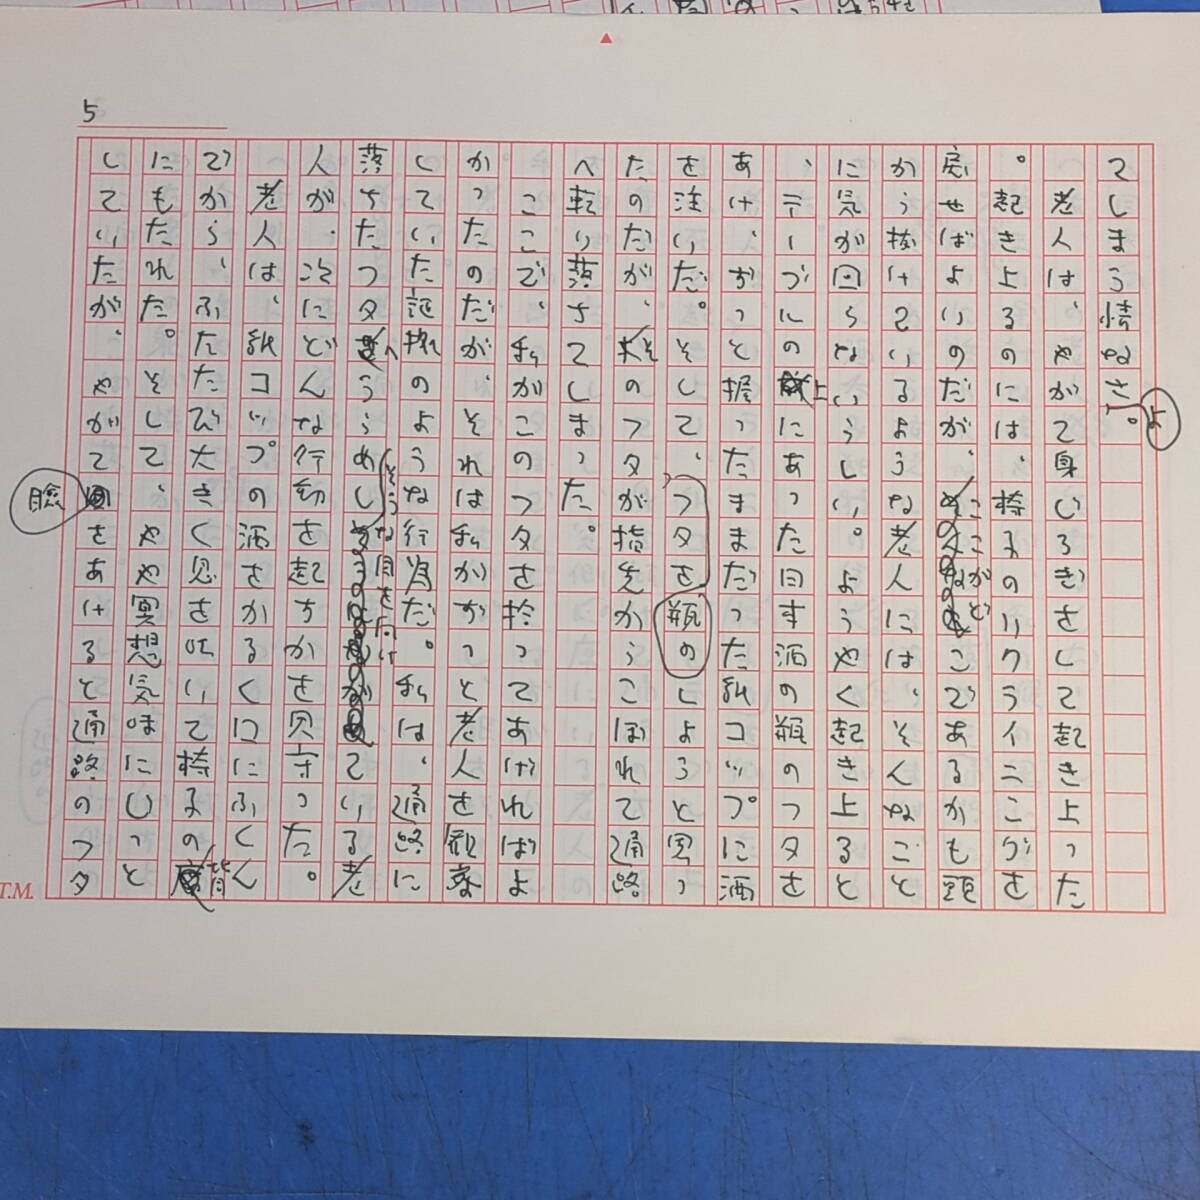 5
てしまう情なさよ。
　老人は、やがて身じろぎをして起き上った
。起き上るのには、椅子のリクライニングを
戻せばよいのだが、ここがどこであるかも頭
から抜けているような老人には、そんなこと
に気が回らないらしい。ようやく起き上ると
、テーブルの上にあった日本酒の瓶のフタを
あけ、ずっと握ったままだった紙コップに酒
を注いだ。そして、フタを瓶の口しようと思っ
たのだが、そのフタが指先からこぼれて通路
へ転り落ちてしまった。
　ここで、私がこのフタを拾ってあげればよ
かったのだが、それは私がずっと老人を観察
していた証拠のような行為だ。私は、通路に
落ちたフタへうらめしそうな目を向けている老
人が、次にどんな行動を起すかを見守った。
　老人は、紙コップの酒をかるく口にふくん
でから、ふたたび大きく息を吐いて椅子の背
にもたれた。そして、やや冥想気味にじっと
していたが、やがて瞼をあけると通路のフタ
T.M.